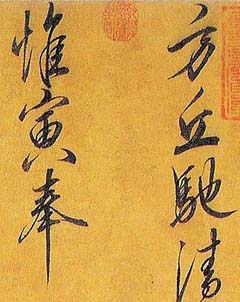 方丘馳清
惟寅奉